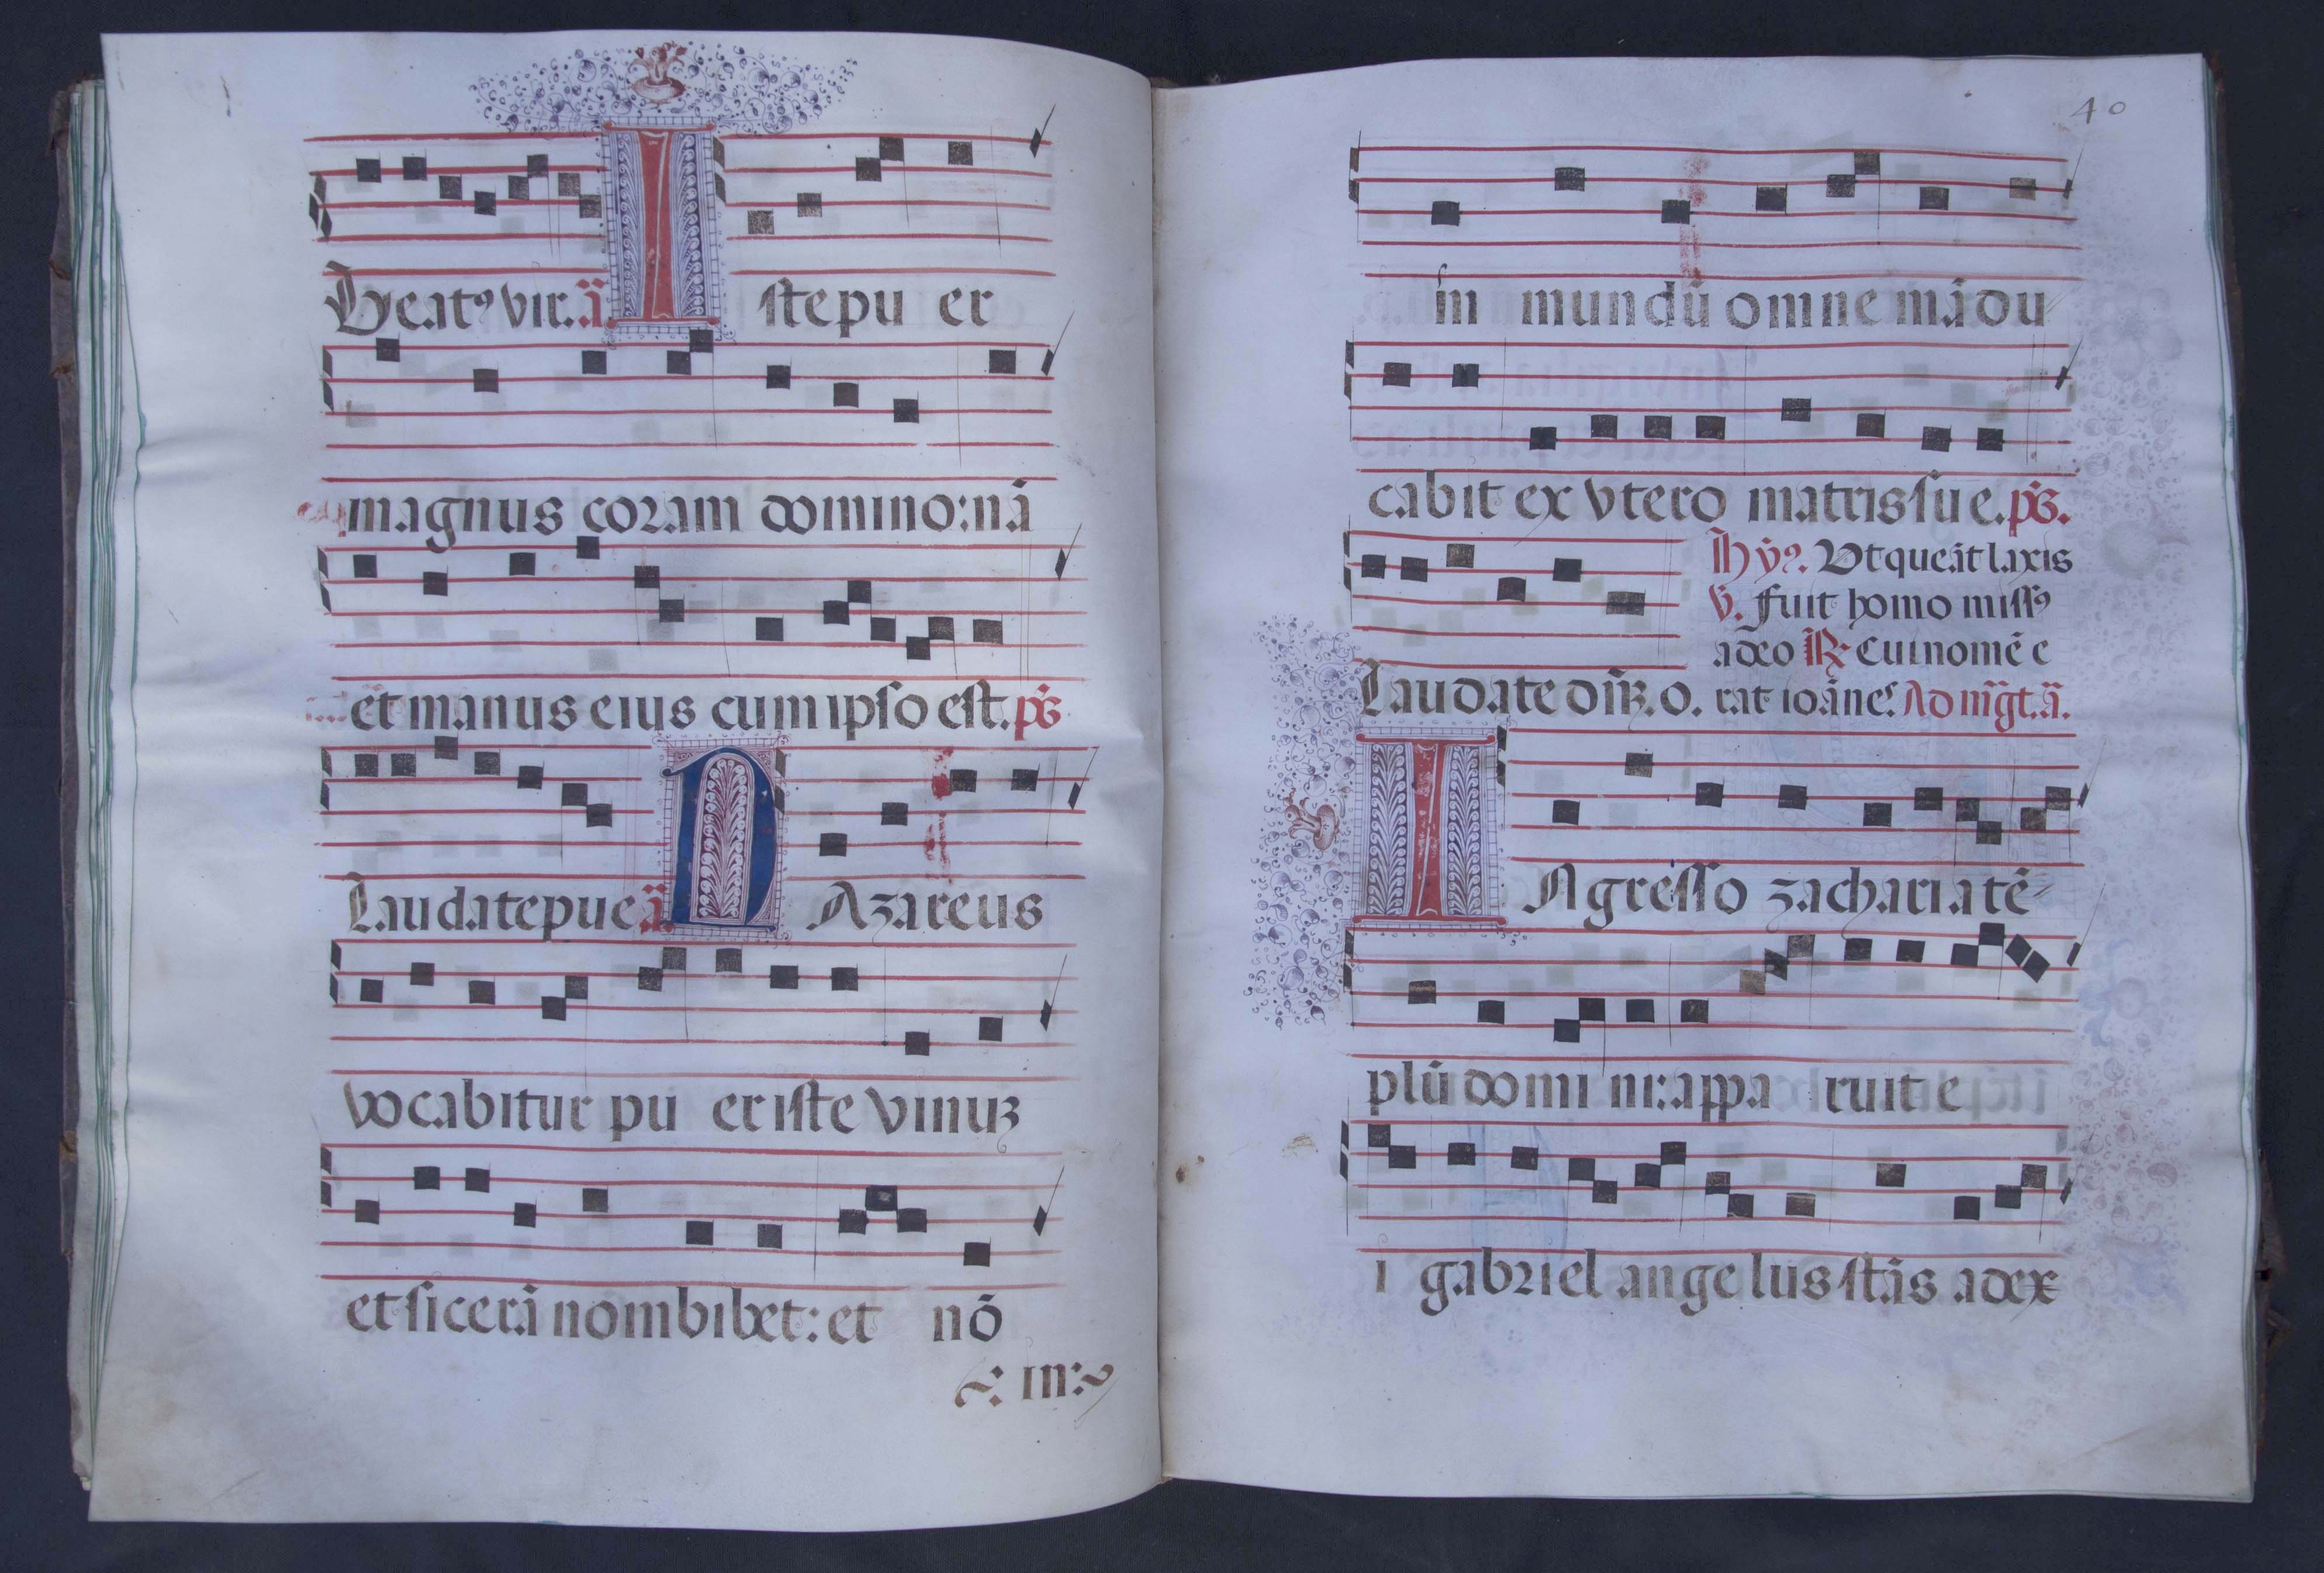 Beatꝰ vir. ã. I ste pu er
magnus coram domino: nã
et manus eius cum ipso est. ps̃
Laudate pue ã. N Azareus
vocabitur pu er iste vinuꝫ
et sicerã nõm bibet: et nõ
~: III: ~
40
in mundũ omne mãdu
cabit ex vtero matris sue. ps̃.
Hỹꝰ. Vt queãt laxis
V̓. fuit homo missꝰ
adeo R̃ Cui nomẽ e
Laudate dñꝫ. o. rat ioãnes. Ad mg̃t. ã.
I Ngresso zacharia tẽ
plũ domi ni: appa ruit e
i gabriel angelus stãs adex